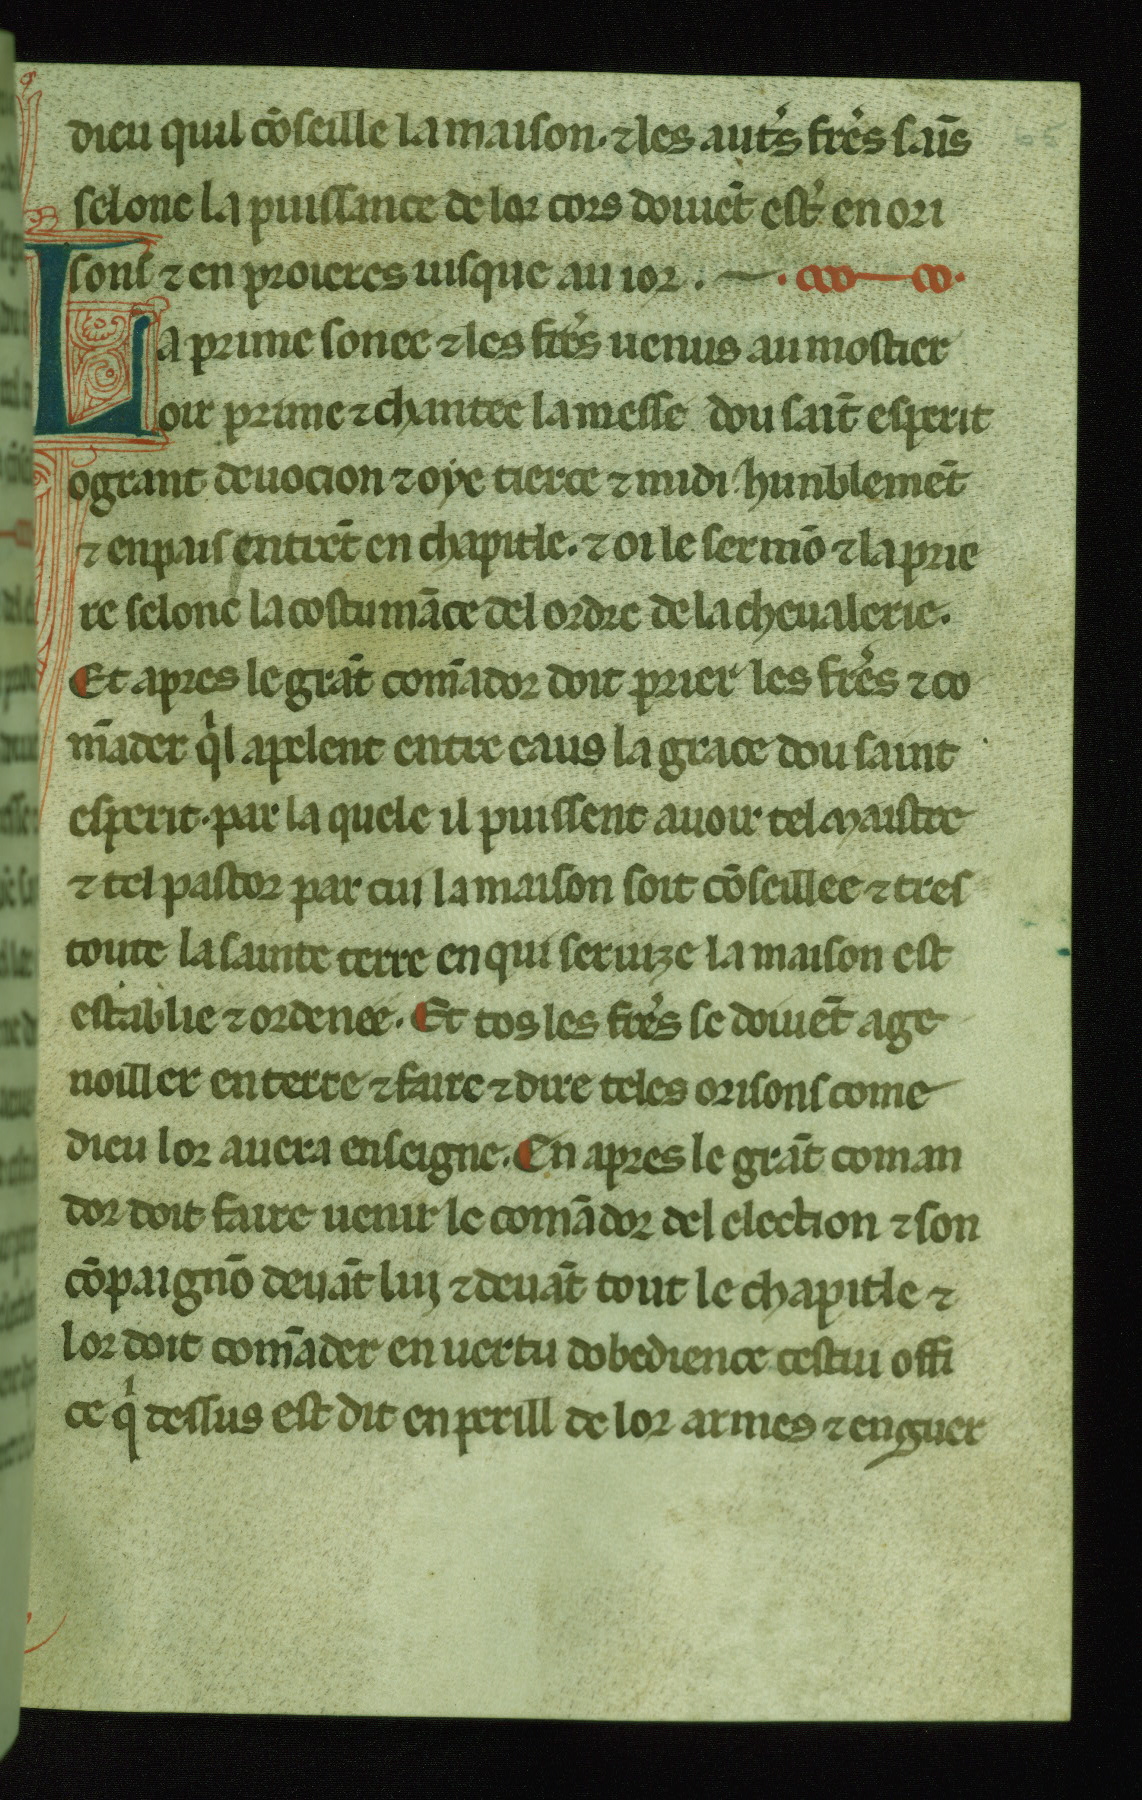 dieu quil cõseille la maison. ⁊ les aut̾s fre̾s sãīs
selonc la puissance de lor cors doiuẽt est̾ en ori
sons ⁊ en proieres iusque au ior.
La prime sonee ⁊ les fre̾s uenus au mostier
oir prime ⁊ chantee la messe dou saĩt esperit
o grant deuocion ⁊ oye tierce ⁊ midi hunblemẽt
⁊ en pais entrẽt en chapitle. ⁊ oi le sermõ ⁊ la prie
re selonc la costumãce del ordre de la cheualerie.
Et apres le grãt comãdor doit prier les fre̾s ⁊ co
mãder qͥl apelent entre eaus la grace dou saint
esperit. par la quele il puissent auoir tel maistre
⁊ tel pastor par cui la maison soit cõseillee ⁊ tres
toute la sainte terre en qui seruize la maison est
establie ⁊ ordenee. Et tos les fre̾s se doiuẽt age
noiller en terre ⁊ faire ⁊ dire teles orisons come
dieu lor auera enseigne. En apres le grãt coman
dor doit faire uenir le comãdor del election ⁊ son
cõpaignõ deuãt luj ⁊ deuãt tout le chapitle ⁊
lor doit comãder en uertu dobedience cestui offi
ce qͥ dessus est dit en perill de lor armes ⁊ en guer